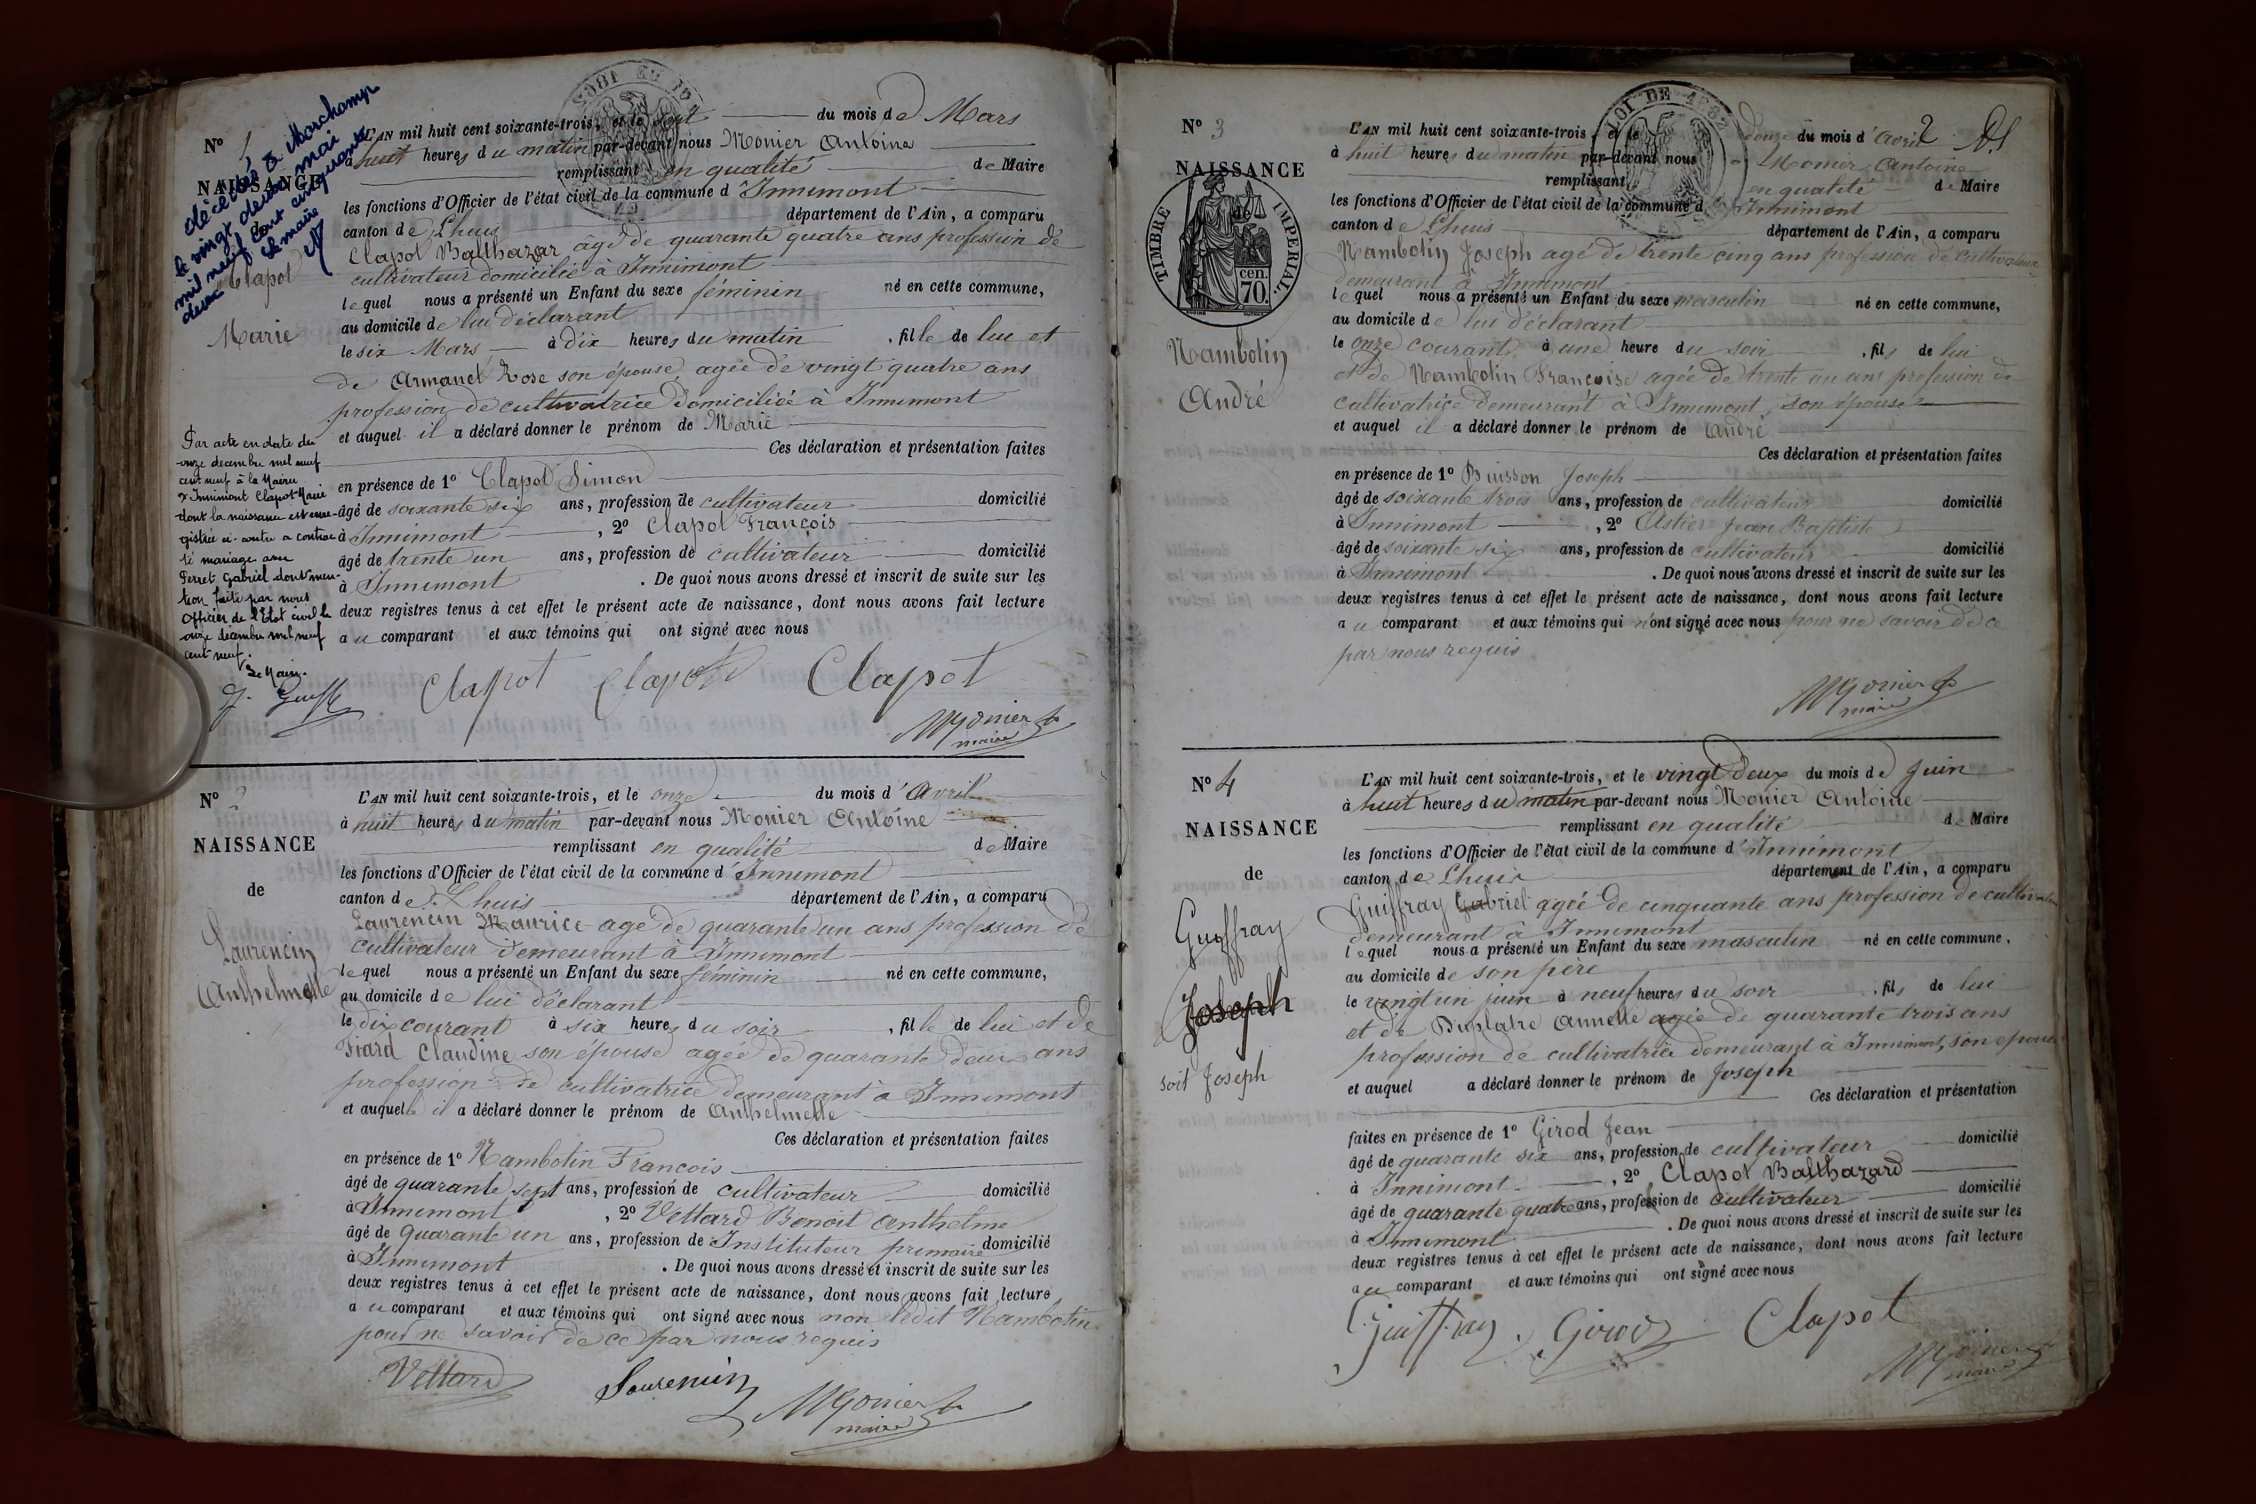 Nº 1
NAISSANGE
décédée à Marchamp
le vingt deux mai
mil neuf cent cinquante
deux le maire
Clapot
Marie
Par acte en date du
onze décembre mil neuf
cent neuf à la Mairie
d'Innimont Clapot Marie
dont la naissance est enre-
gistrée ci-contre a contrac
té mariage avec
Perret Gabriel dont men-
tion faite par nous
Officier de l'Etat civil le
onze décembre mil neuf
cent neuf.
Le Maire.
L'AN mil huit cent soixante-trois, et le sept du mois de Mars
à huit heures du matin par-devant nous Monier Antoine
remplissant en qualité de Maire
les fonctions d'Officier de l'état civil de la commune d'Innimont
canton de Lhuis département de l'Ain, a comparu
Clapot Balthazar âgé de quarante quatre ans profession de
cultivateur domicilié à Innimont
lequel nous a présenté un Enfant du sexe féminin né en cette commune,
au domicile de lui déclarant
le six Mars à dix heures du matin , fille de lui et
de Armanet Rose son épouse agée de vingt quatre ans
profession de cultivatrice domiciliée à Innimont
et auquel il a déclaré donner le prénom de Marie
Ces déclaration et présentation faites
en présence de 1º Clapot Simon
âgé de soixante six ans, profession de cultivateur domicilié
à Innimont , 2º Clapot François
âgé de trente un ans, profession de cultivateur domicilié
à Innimont . De quoi nous avons dressé et inscrit de suite sur les
deux registres tenus à cet effet le présent acte de naissance, dont nous avons fait lecture
au comparant et aux témoins qui ont signé avec nous
Clapot Clapot Clapot
Monier
maire
Nº 2
NAISSANCE
de
Laurencin
Anthelmette
L'AN mil huit cent soixante-trois, et le onze du mois d'Avril
à huit heures du matin par-devant nous Monier Antoine
remplissant en qualité de Maire
les fonctions d'Officier de l'état civil de la commune d'Innimont
canton de Lhuis département de l'Ain, a comparu
Laurencin Maurice age de quarante un ans profession de
cultivateur demeurant à Innimont
lequel nous a présenté un Enfant du sexe féminin né en cette commune,
au domicile de lui déclarant
le dix courant à six heures du soir , fille de lui et de
Fiard Claudine son épouse agée de quarante deux ans
profession de cultivatrice demeurant à Innimont
et auquelle il a déclaré donner le prénom de Anthelmette
Ces déclaration et présentation faites
en présence de 1º Nambotin François
âgé de quarante sept ans, profession de cultivateur domicilié
à Innimont , 2º Vettard Benoit Anthelme
âgé de quarante un ans, profession de Instituteur primaire domicilié
à Innimont . De quoi nous avons dressé et inscrit de suite sur les
deux registres tenus à cet effet le présent acte de naissance, dont nous avons fait lecture
au comparant et aux témoins qui ont signé avec nous non ledit Nambotin
pour ne savoir de ce par nous requis
Vettard Laurencin Monier
maire
2
Nº 3
NAISSANCE
de
TIMBRE IMPERIAL
cen.
70.
Nambotin
André
LOI DE 1862
L'AN mil huit cent soixante-trois, et le douze du mois d'Avril
à huit heures du matin par-devant nous Monier Antoine
remplissant en qualité de Maire
les fonctions d'Officier de l'état civil de la commune d'Innimont
canton de Lhuis département de l'Ain, a comparu
Nambotin Joseph agé de trente cinq ans profession de cultivateur
demeurant à Innimont
lequel nous a présenté un Enfant du sexe masculin né en cette commune,
au domicile de lui déclarant
le onze courant à une heure du soir , fils de lui
et de Nambotin Françoise agée de trente un ans profession de
cultivatrice demeurant à Innimont, son épouse
et auquel il a déclaré donner le prénom de André
Ces déclaration et présentation faites
en présence de 1º Buisson Joseph
âgé de soixante trois ans, profession de cultivateur domicilié
à Innimont , 2º Astier Jean Baptiste
âgé de soixante six ans, profession de cultivateur domicilié
à Innimont . De quoi nous avons dressé et inscrit de suite sur les
deux registres tenus à cet effet le présent acte de naissance, dont nous avons fait lecture
au comparant et aux témoins qui n'ont signé avec nous pour ne savoir de ce
par nous requis
Monier
maire
Nº 4
NAISSANCE
de
Guiffray
Joseph
soit Joseph
L'AN mil huit cent soixante-trois, et le vingt deux du mois de Juin
à huit heures du matin par-devant nous Monier Antoine
remplissant en qualité de Maire
les fonctions d'Officier de l'état civil de la commune d'Innimont
canton de Lhuis département de l'Ain, a comparu
Guiffray Gabriel agée de cinquante ans profession de cultivateur
demeurant à Innimont
lequel nous a présenté un Enfant du sexe masculin né en cette commune,
au domicile de son père
le vingt un juin à neuf heures du soir , fils de lui
et de Duplatre Annette agée de quarante trois ans
profession de cultivatrice demeurant à Innimont, son epouse
et auquel a déclaré donner le prénom de Joseph
Ces déclaration et présentation
faites en présence de 1º Girod Jean
âgé de quarante six ans, profession de cultivateur domicilié
à Innimont , 2º Clapot Balthazard
âgé de quarante quatre ans, profession de cultivateur domicilié
à Innimont . De quoi nous avons dressé et inscrit de suite sur les
deux registres tenus à cet effet le présent acte de naissance, dont nous avons fait lecture
au comparant et aux témoins qui ont signé avec nous
Guiffray Girod Clapot
Monier
maire